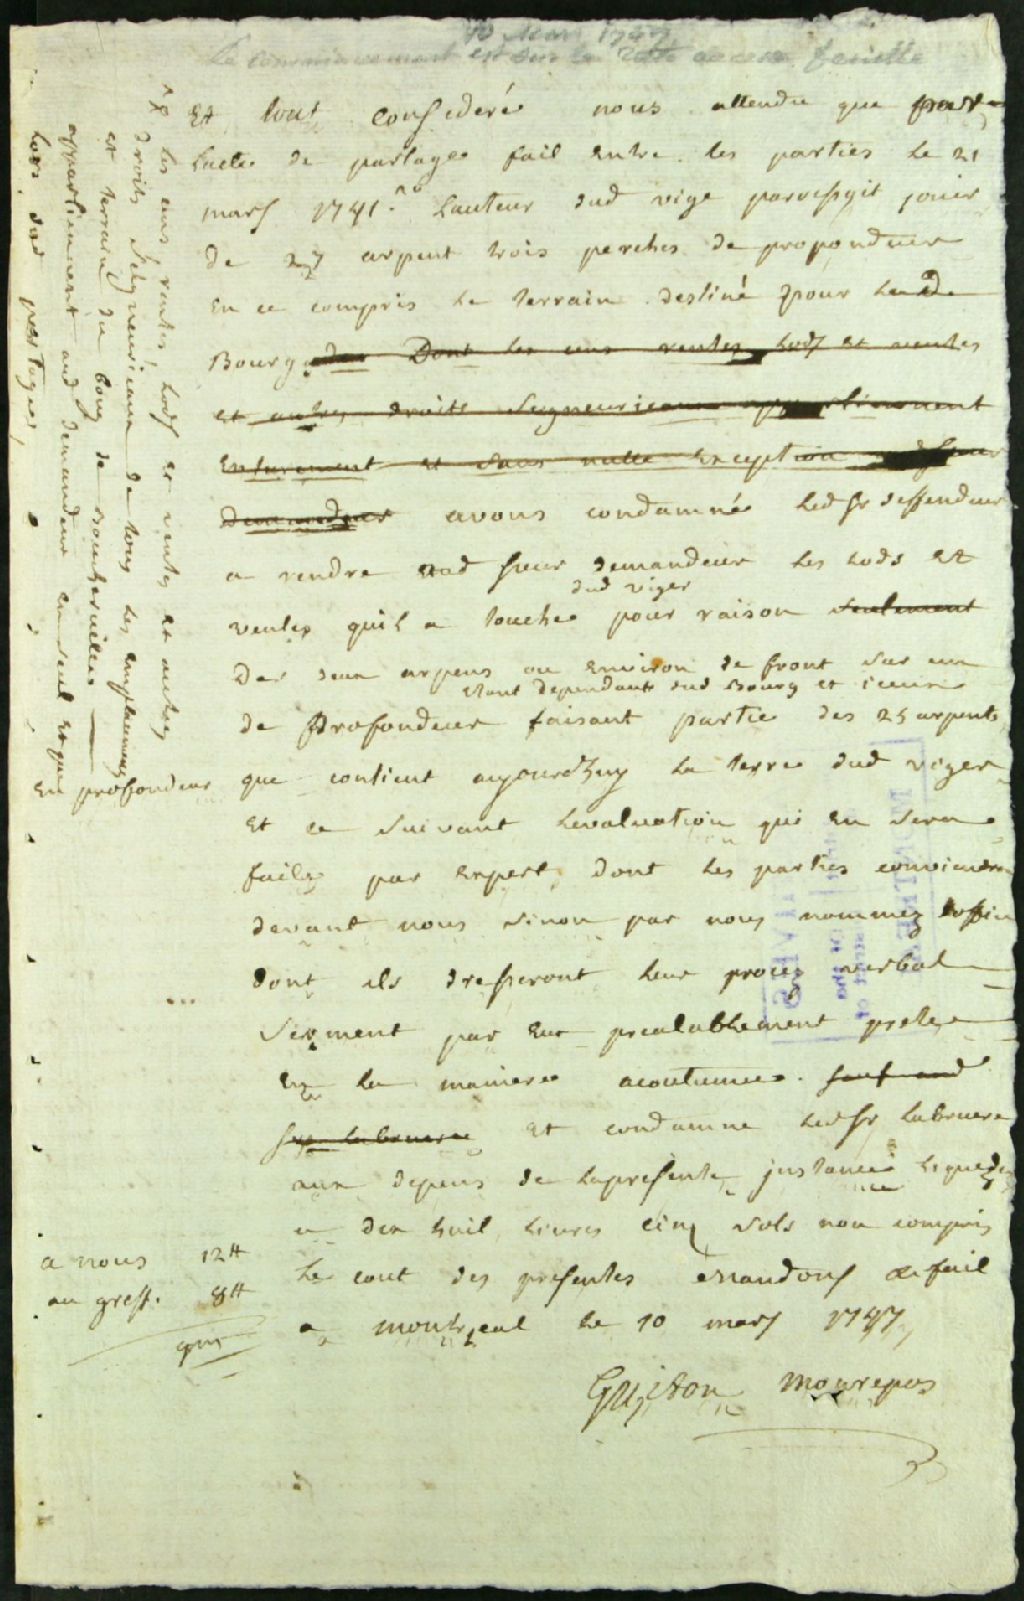 10 Mars 1747
Le commencement est sur la 
Et tout considéré nous attendu que par
Lacte de partage fait entre les parties le 21
mars 1741. Lauteur dud viger jouir
de 27 arpent trois perches de profondeur
en ce compris le terrain destiné pour led
Bourg Dont les cens rentes Lods et ventes
et autres droits Seigneuriaux appartiennent
Entierement et sans nulle Exception
Demandeur avons condamné Led Sr deffendeur
a rendre aud sieur Demandeur les Lods et
dud viger
ventes quil a touché pour raison seulement
Des deux arpens ou environ de front sur un
etant dependant dud Bourg et
de Profondeur faisant partie des 25 arpents
que contient aujourdhuy la terre dud viger
et ce suivant levaluation qui en sera
faite par Expert dont les parties conviendront
devant nous sinon par nous nommez doffice
dont ils dresseront leur procez verbal
Serment par Eux prealablement preté
En la maniere acoutumée. sauf aud
Sr Labruere et condamne led Sr Labruere
aux depens de lapresente instance liquidez
a dix huit livres cinq sols non compris
Le cout des presentes Mandons &c fait
a montreal le 10 mars 1747
Guiton Monrepos
Les cens, rentes, Lods et ventes et autres
droits Seigneuriaux de tous les emplacemens
et terrain du bourg de Boucherville
appartiennent aud demandeur en seul et que
Lors dud partage,
en profondeur
a nous 12#
au greff. 8#